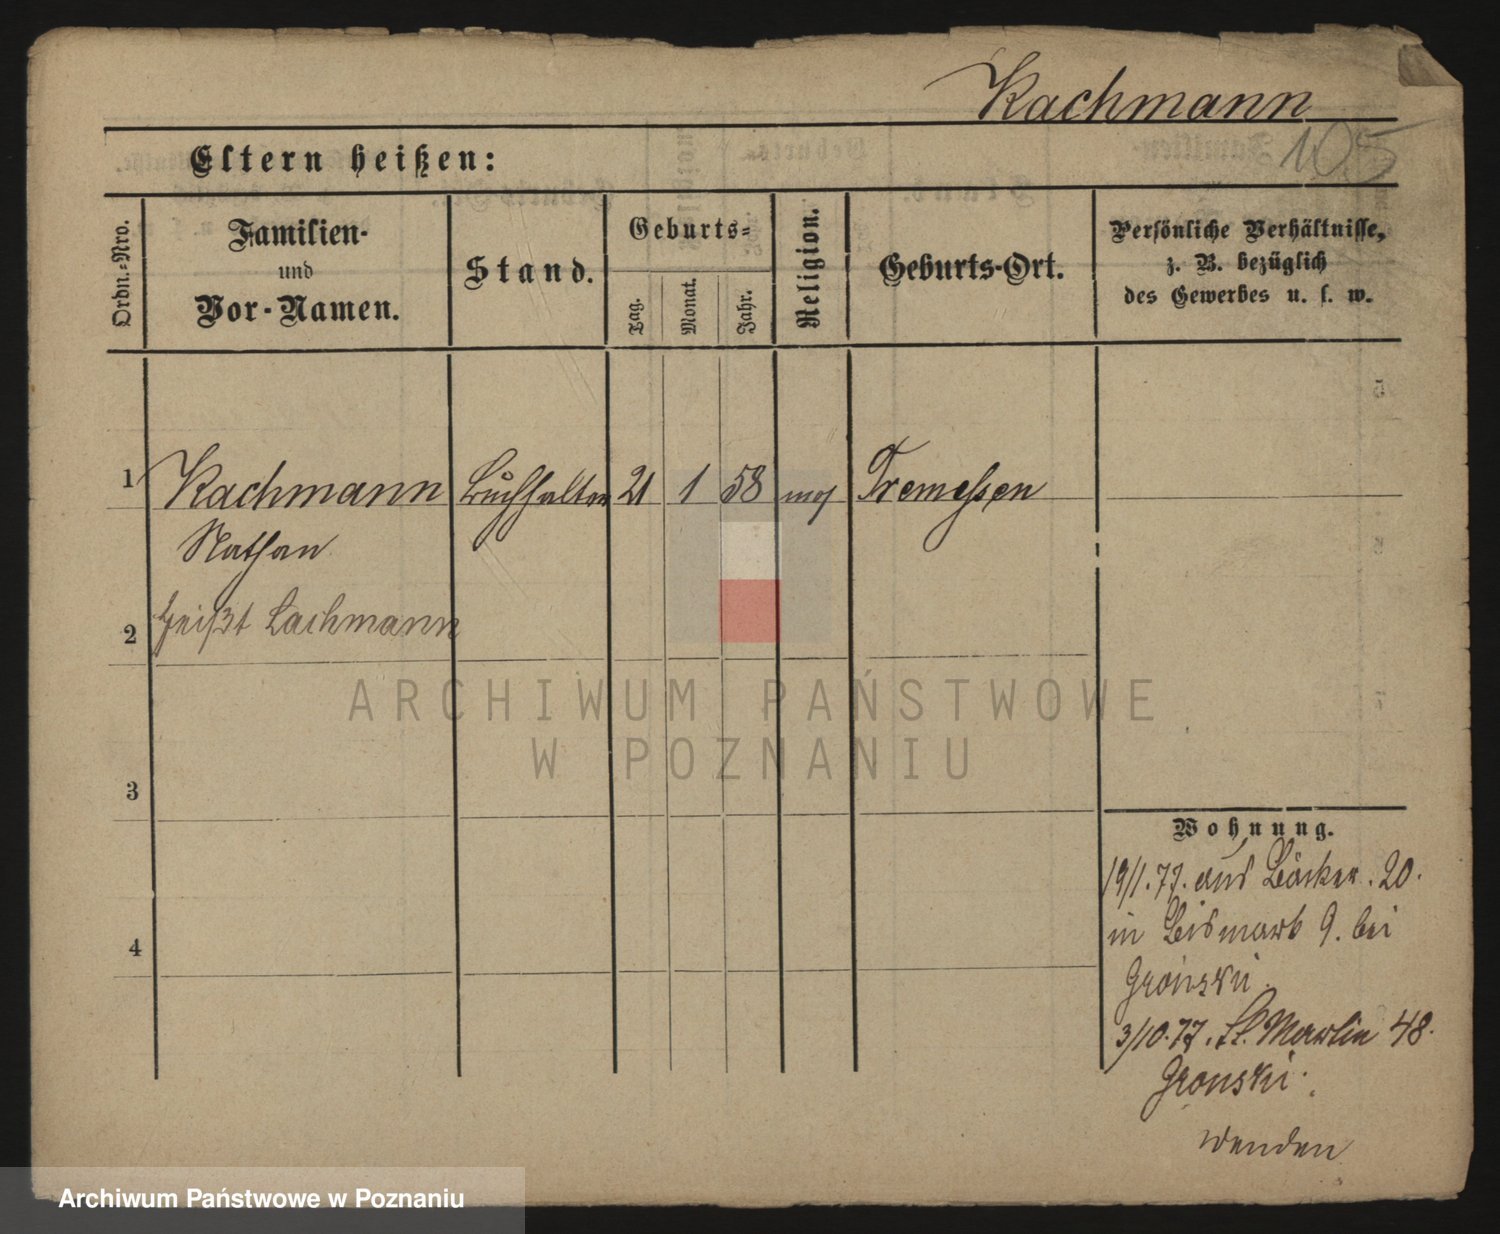 Kachmann
105
Eltern heißen:
Ordn.-Nro.
Familien-
und
Vor-Namen.
Stand.
Geburts-
Tag.
Monat.
Jahr.
Religion.
Geburts-Ort.
Persönliche Verhältnisse,
z. B. bezüglich
des Gewerbes u. s. w.
1 Kachmann Buchhalter 21 1 58 mos Tremessen
Nathan
2 heißt Lachmann
3
4
ARCHIWUM PAŃSTWOWE
W POZNANIU
Wohnung.
19/1.77. aus Bäcker. 20.
in Bismark 9. bei
Gronski.
3/10.77. St. Martin 48.
Gronski.
wenden
Archiwum Państwowe w Poznaniu